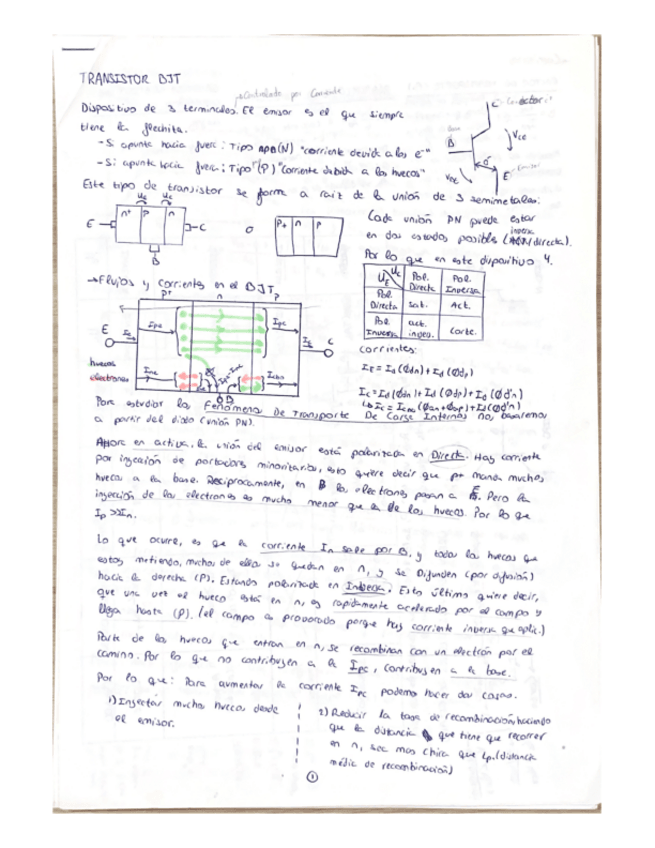 TRANSISTOR BJT
Controlado por Corriente
Dispositivo de 3 terminales. El emisor es el que siempre
tiene la flechita.
- Si apunta hacia fuera: Tipo NPN(N) "corriente debida a los e⁻"
- Si apunta hacia fuera: Tipo (P) "corriente debida a los huecos"
Este tipo de transistor se forma a raíz de la unión de 3 semimetales:
C
B
E
VCE
E
n+ p n
C
B
o
p+ n p
Cada unión PN puede estar
en dos estados posibles (inversa/directa).
Por lo que en este dispositivo 4.
UE UC Pol. Directa Pol. Inversa
Pol. Directa sat. Act.
Pol. Inversa act. inver. Corte.
→ Flujos y corrientes en el BJT
p+ n p
E
IE
IpE
IpC
IC
C
InE
B
huecos
electrones
corrientes:
Para estudiar los Fenómenos De Transporte De Carga Internos nos basaremos
a partir del diodo (unión PN).
Ahora en activa, la unión del emisor está polarizada en Directa. Hay corriente
por inyección de portadores minoritarios, esto quiere decir que p+ manda muchos
huecos a la base. Recíprocamente, en B los electrones pasan a E. Pero la
inyección de los electrones es mucho menor que la de los huecos. Por lo que
Ip >> In.
Lo que ocurre, es que la corriente In sale por B, y todos los huecos que
estoy metiendo, muchos de ellos se quedan en n, y se Difunden (por difusión)
hacia la derecha (P). Estando polarizada en Inversa. Esto último quiere decir,
que una vez el hueco está en n, es rapidamente acelerado por el campo y
llega hasta (P). (el campo es provocado porque hay corriente inversa que aplic.)
Parte de los huecos que entran en n, se recombinan con un electrón por el
camino. Por lo que no contribuyen a la Ipc, contribuyen a la base.
Por lo que: Para aumentar la corriente Ipc podemos hacer dos cosas.
1) Inyectar muchos huecos desde
el emisor.
2) Reducir la tasa de recombinación, haciendo
que la distancia que tiene que recorrer
en n, sea mas chica que Lp. (distancia
média de recombinación)
1